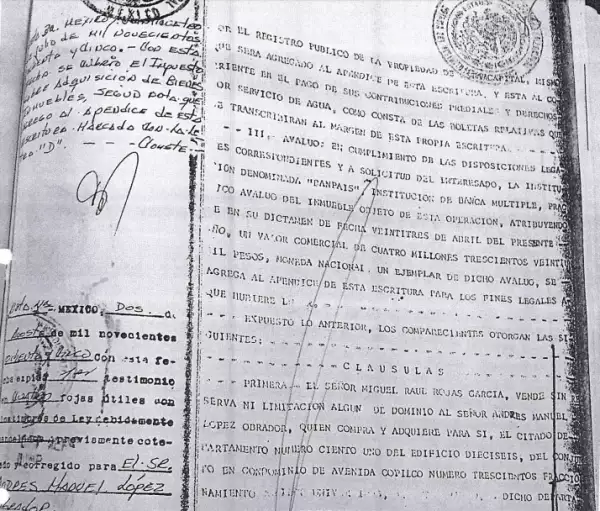 MEXICO
DE MIL NOVECIENTOS
Y CINCO.- CON ESTA
SE CUBRIO EL IMPUESTO
ADQUISICIÓN DE BIENES
SEGUN NOTA QUE
AGREGO AL APENDICE DE ESTA
ESCRITURA MARCADO CON LA LE
"D".-
CONSTE.-
MEXICO, DOS
de mil novecientos
Con esta fe
testimonio
en fojas útiles con
de Ley debidamente
previamente cote-
y corregido para EL SR.
ANDRES MANUEL LÓPEZ
OBRADOR
POR EL REGISTRO PUBLICO DE LA PROPIEDAD DE CAPITAL, MISMO
QUE SERA AGREGADO AL APENDICE DE ESTA ESCRITURA, Y ESTA AL CO
RRIENTE EN EL PAGO DE SUS CONTRIBUCIONES PREDIALES Y DERECHOS
POR SERVICIO DE AGUA, COMO CONSTA DE LAS BOLETAS RELATIVAS QUE
SE TRANSCRIBIRAN AL MARGEN DE ESTA PROPIA ESCRITURA.
--- III.- AVALUO: EN CUMPLIMIENTO DE LAS DISPOSICIONES LEGA
ES CORRESPONDIENTES Y A SOLICITUD DEL INTERESADO, LA INSTITU
CION DENOMINADA "BANPAIS", INSTITUCION DE BANCA MULTIPLE, PRAC
ICO AVALUO DEL INMUEBLE OBJETO DE ESTA OPERACION, ATRIBUYENDO
E EN SU DICTAMEN DE FECHA VEINTITRES DE ABRIL DEL PRESENTE
ÑO, UN VALOR COMERCIAL DE CUATRO MILLONES TRESCIENTOS VEINTIU
MIL PESOS, MONEDA NACIONAL. UN EJEMPLAR DE DICHO AVALUO, SE
AGREGA AL APENDICE DE ESTA ESCRITURA PARA LOS FINES LEGALES A
QUE HUBIERE
--- EXPUESTO LO ANTERIOR, LOS COMPARECIENTES OTORGAN LAS SI
GUIENTES:
C L A U S U L A S
PRIMERA.- EL SEÑOR MIGUEL RAUL ROJAS GARCIA, VENDE SIN
SERVA NI LIMITACION ALGUN DE DOMINIO AL SEÑOR ANDRES MANUEL
LOPEZ OBRADOR, QUIEN COMPRA Y ADQUIERE PARA SI, EL CITADO DE
PARTAMENTO NUMERO CIENTO UNO DEL EDIFICIO DIECISEIS, DEL CONJUN
TO EN CONDOMINIO DE AVENIDA COPILCO NUMERO TRESCIENTOS FRACCIO
NAMIENTO DICHO DEPARTA